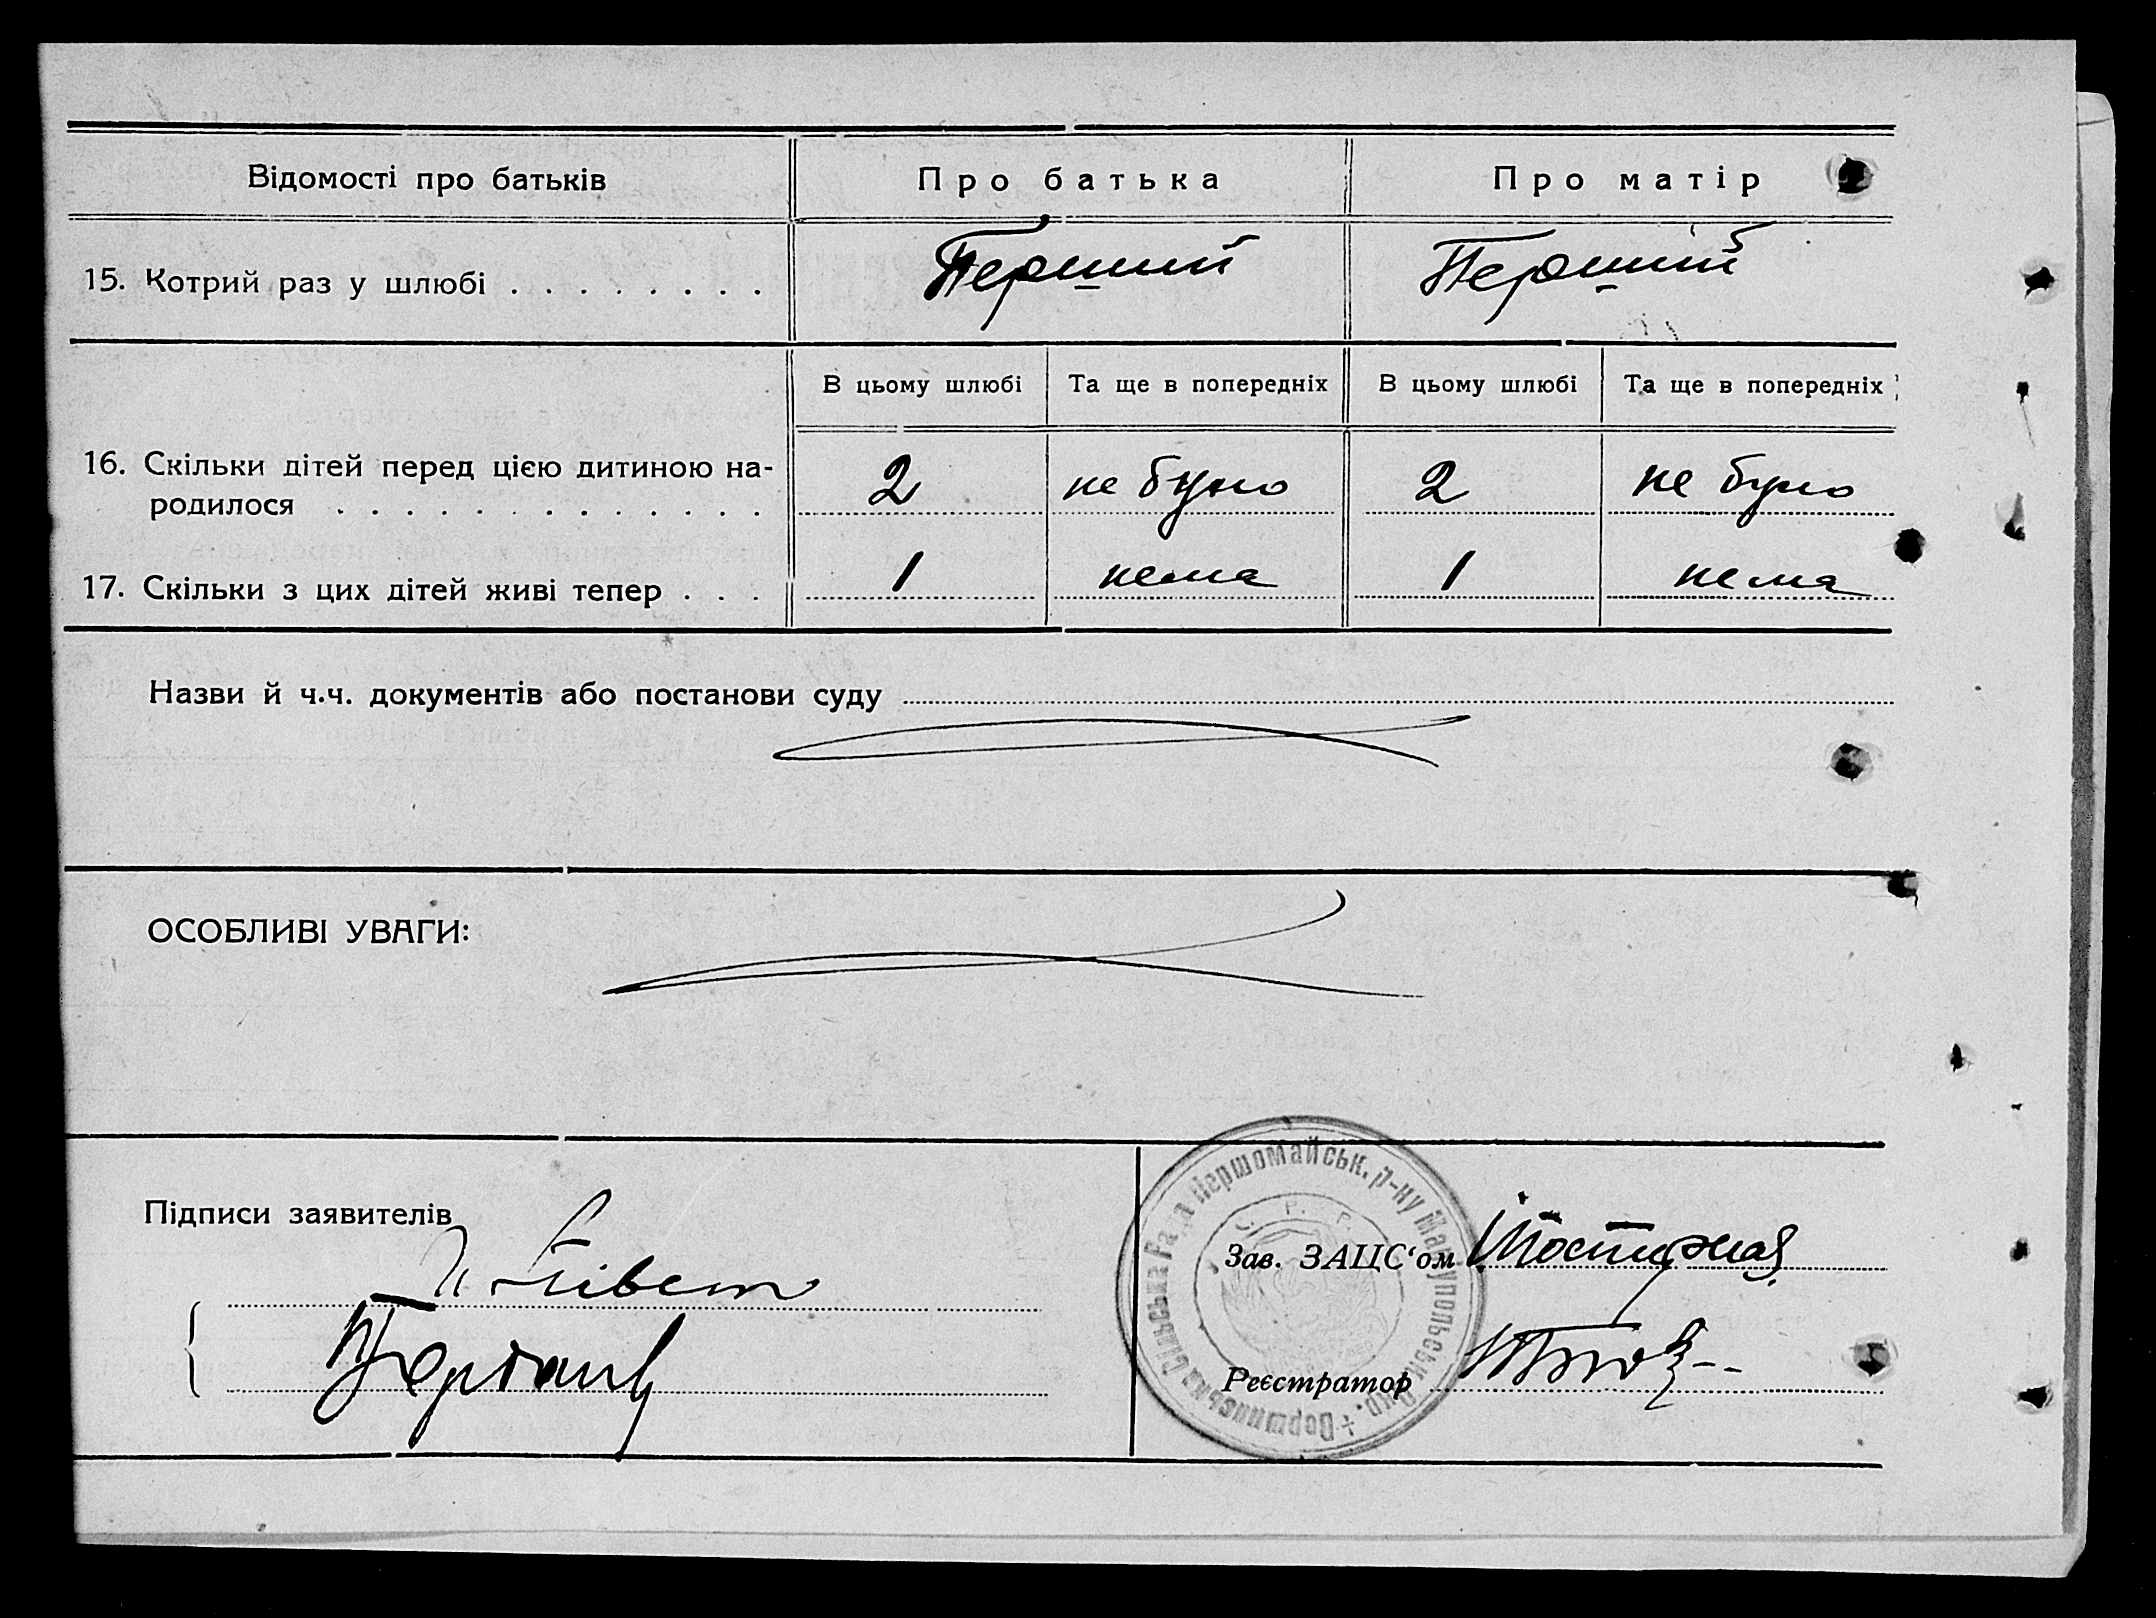 Відомості про батьків
Про батька
Про матір
15. Котрий раз у шлюбі . . . . . . . .
Перший
Перший
В цьому шлюбі
Та ще в попередніх
В цьому шлюбі
Та ще в попередніх
16. Скільки дітей перед цією дитиною на-
родилося . . . . . . . . . . . . .
2
не було
2
не було
17. Скільки з цих дітей живі тепер . . .
1
нема
1
нема
Назви й ч.ч. документів або постанови суду
ОСОБЛИВІ УВАГИ:
Підписи заявителів
Зав. ЗАЦС‘ом
Реєстратор
Сільська Рада Першомайськ. р-ну Маріупольськ. Окр.